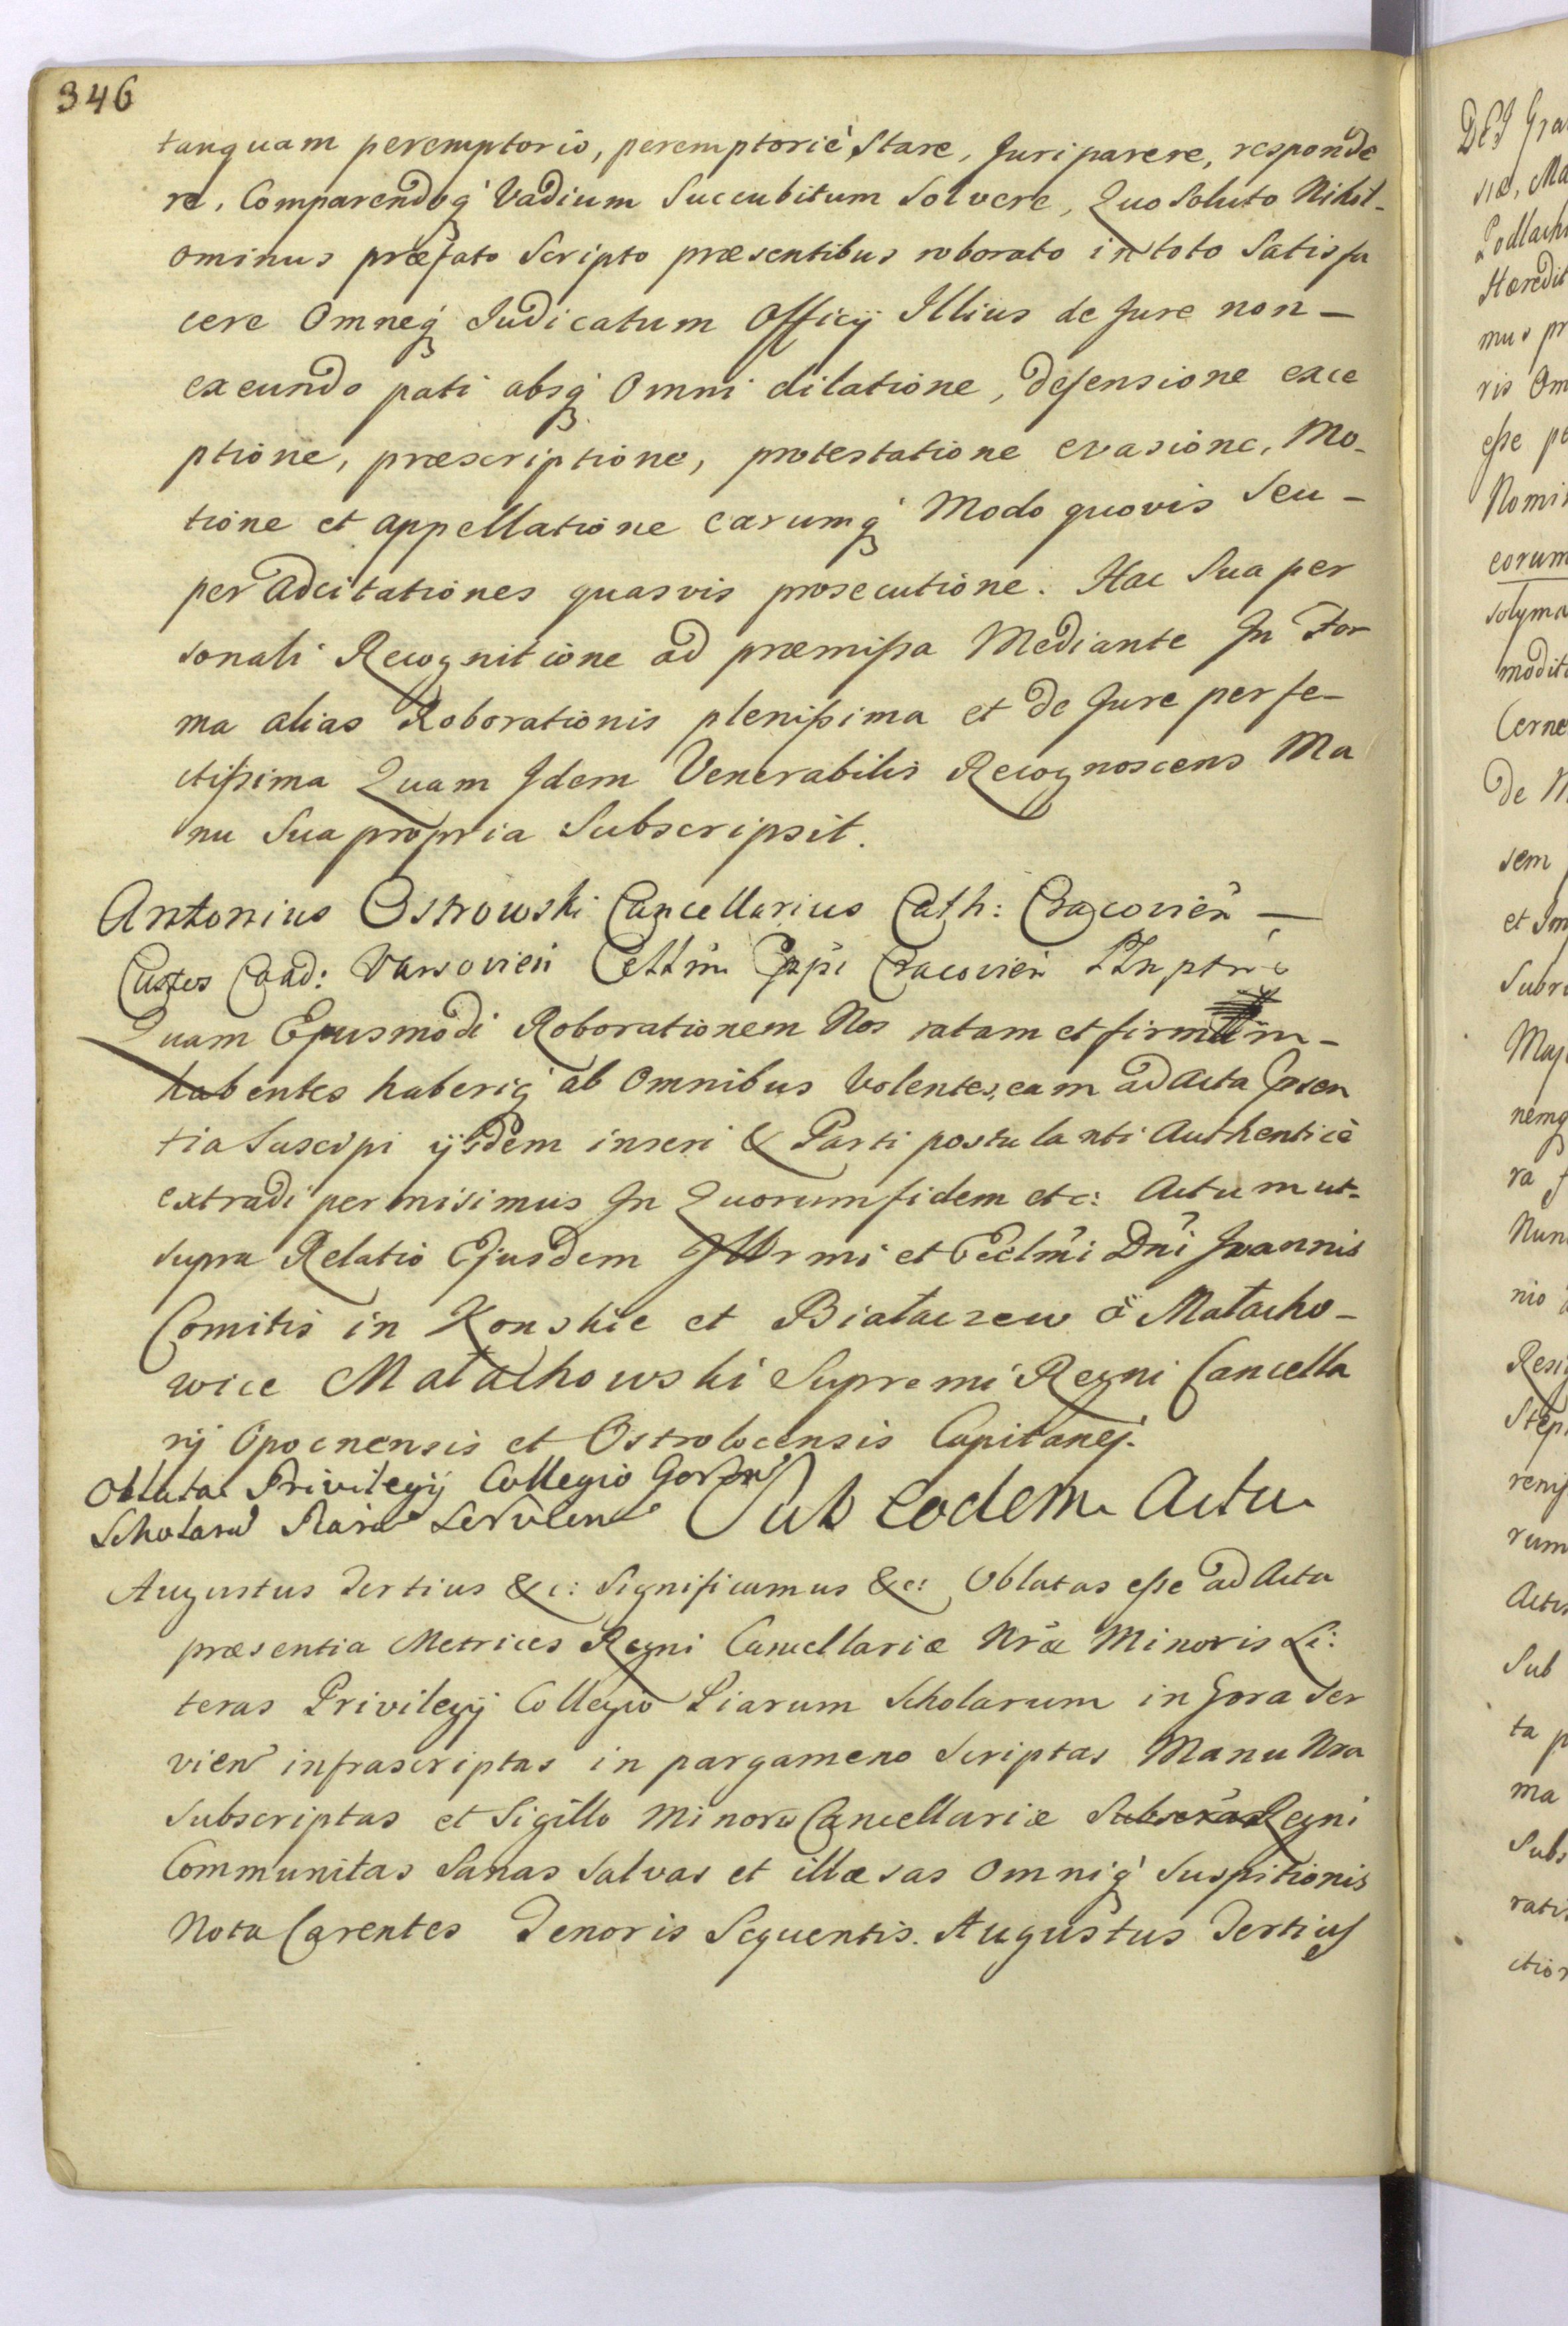 346
tanquam peremptorio, peremptoriè Stare, Juri parere, responde
re, Comparendoq́ Vadium Succubitum Solvere, Quo Soluto Nihil-
ominus præfato Scripto præsentibus roborato in toto Satisfa
cere Omneq́ Judicatum Officij Illius de Jure non —
exeundo pati absq́ Omni dilatione, defensione exce
ptione, præscriptione, protestatione evasione, Mo-
tione et appellatione earumq́ Modo quovis Seu —
per adcitationes quasvis prosecutione. Hac Sua per
sonali Recognitione ad præmißa Mediante In For
ma alias Roborationis plenißima et de Jure perfe-
ctißima Quam Idem Venerabilis Recognoscens Ma
nu Sua propria Subscripsit.
Antonius Ostrowski Cancellarius Cath: Cracovien̄ —
Custos Varsovien̄ Cracovien̄
Quam Ejusmodi Roborationem Nos ratam et firmam —
habentes haberiq́ ab Omnibus Volentes, eam ad Acta Præsen
tia Suscipi ijsdem inseri & Parti postulanti Authenticè
extradi permisimus In Quorum fidem etc: Actum ut-
supra Relatio Ejusdem Illrmi et Eccłmi Dn̄i Joannis
Comitis in Konskie et Białaczew à Małacho-
wice Małachowski Supremi Regni Cancella
rij Opocnensis et Ostrolocensis Capitanej.
Oblata Privilegij Collegio
Scholarū Sub eodem Actu
Augustus Tertius &c: Significamus &c: Oblatas eße ad Acta
præsentia Metrices Regni Cancellariæ Nræ Minoris Li:
teras Privilegij Collegio Piarum Scholarum in Gora Ser
vien infrascriptas in pargameno Scriptas Manu Nra
Subscriptas et Sigillo Minoris Cancellariæ Regni
Communitas Sanas Salvas et illæsas Omniq́ Suspitionis
Nota Carentes Tenoris Sequentis. Augustus Tertius